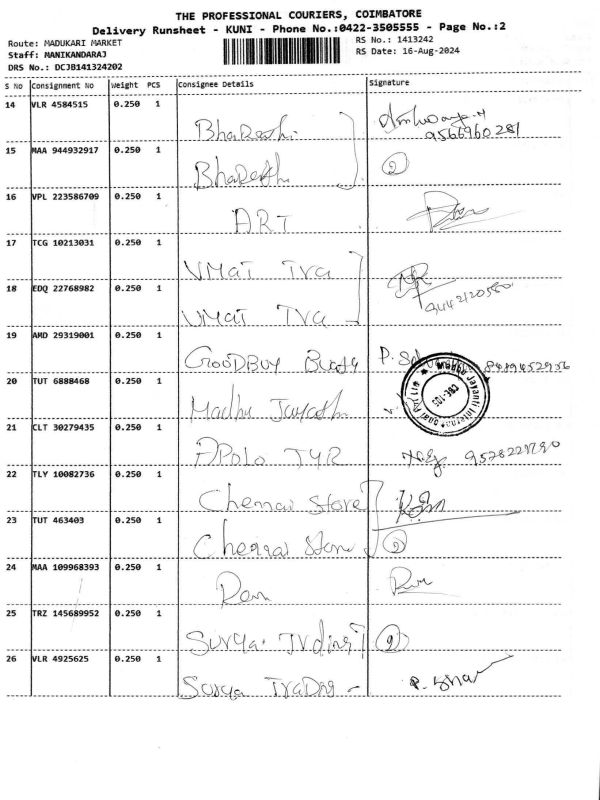 THE PROFESSIONAL COURIERS, COIMBATORE
Delivery Runsheet - KUNI - Phone No.:0422-3505555 - Page No.:2
Route: MADUKARI MARKET
Staff: MANIKANDARAJ
DRS No.: DCJB141324202
RS No.: 1413242
RS Date: 16-Aug-2024
S No Consignment No Weight PCS Consignee Details Signature
14 VLR 4584515 0.250 1 Bharathi
9566960281
15 MAA 944932917 0.250 1 Bharathi 2
16 VPL 223586709 0.250 1 ART
17 TCG 10213031 0.250 1 UMAI TVA
18 EDQ 22768982 0.250 1 UMAI TVA
19 AMD 29319001 0.250 1 GOODBUY
20 TUT 6888468 0.250 1 Madhu Jayanthi
CBE-105
21 CLT 30279435 0.250 1 APOLO TYR
22 TLY 10082736 0.250 1 Chennai Store
23 TUT 463403 0.250 1 Chennai Store 2
24 MAA 109968393 0.250 1 Ram
25 TRZ 145689952 0.250 1 Surya Trding 2
26 VLR 4925625 0.250 1 Surya TraDng